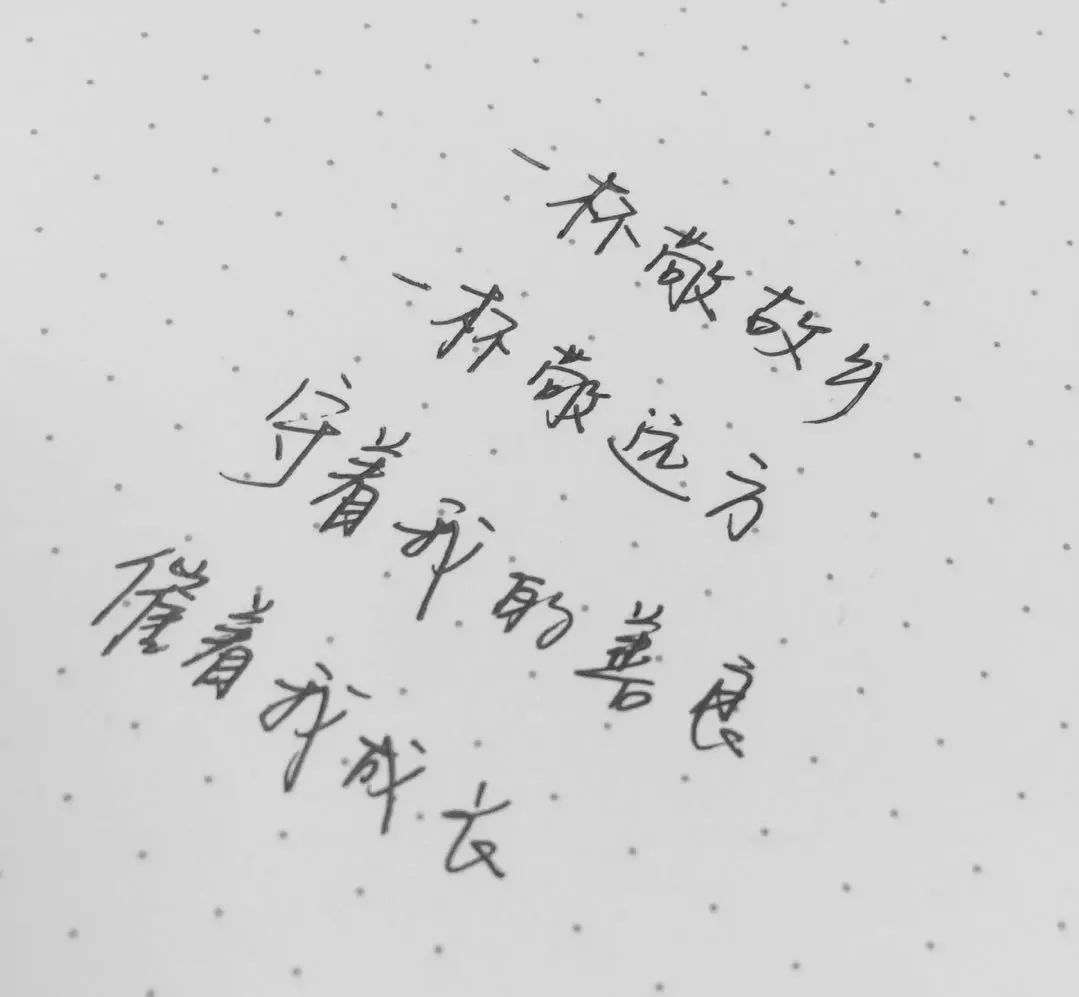 一杯敬故乡
一杯敬远方
守着我的善良
催着我成长